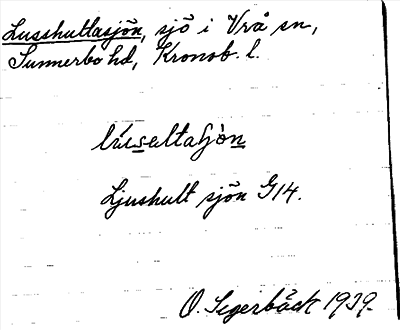 Lusshultasjön, sjö i Vrå sn,
Sunnerbo hd, Kronob. l.
lússeltaʃjò̀n
Ljushult sjön G14.
O. Segerbäck 1929.